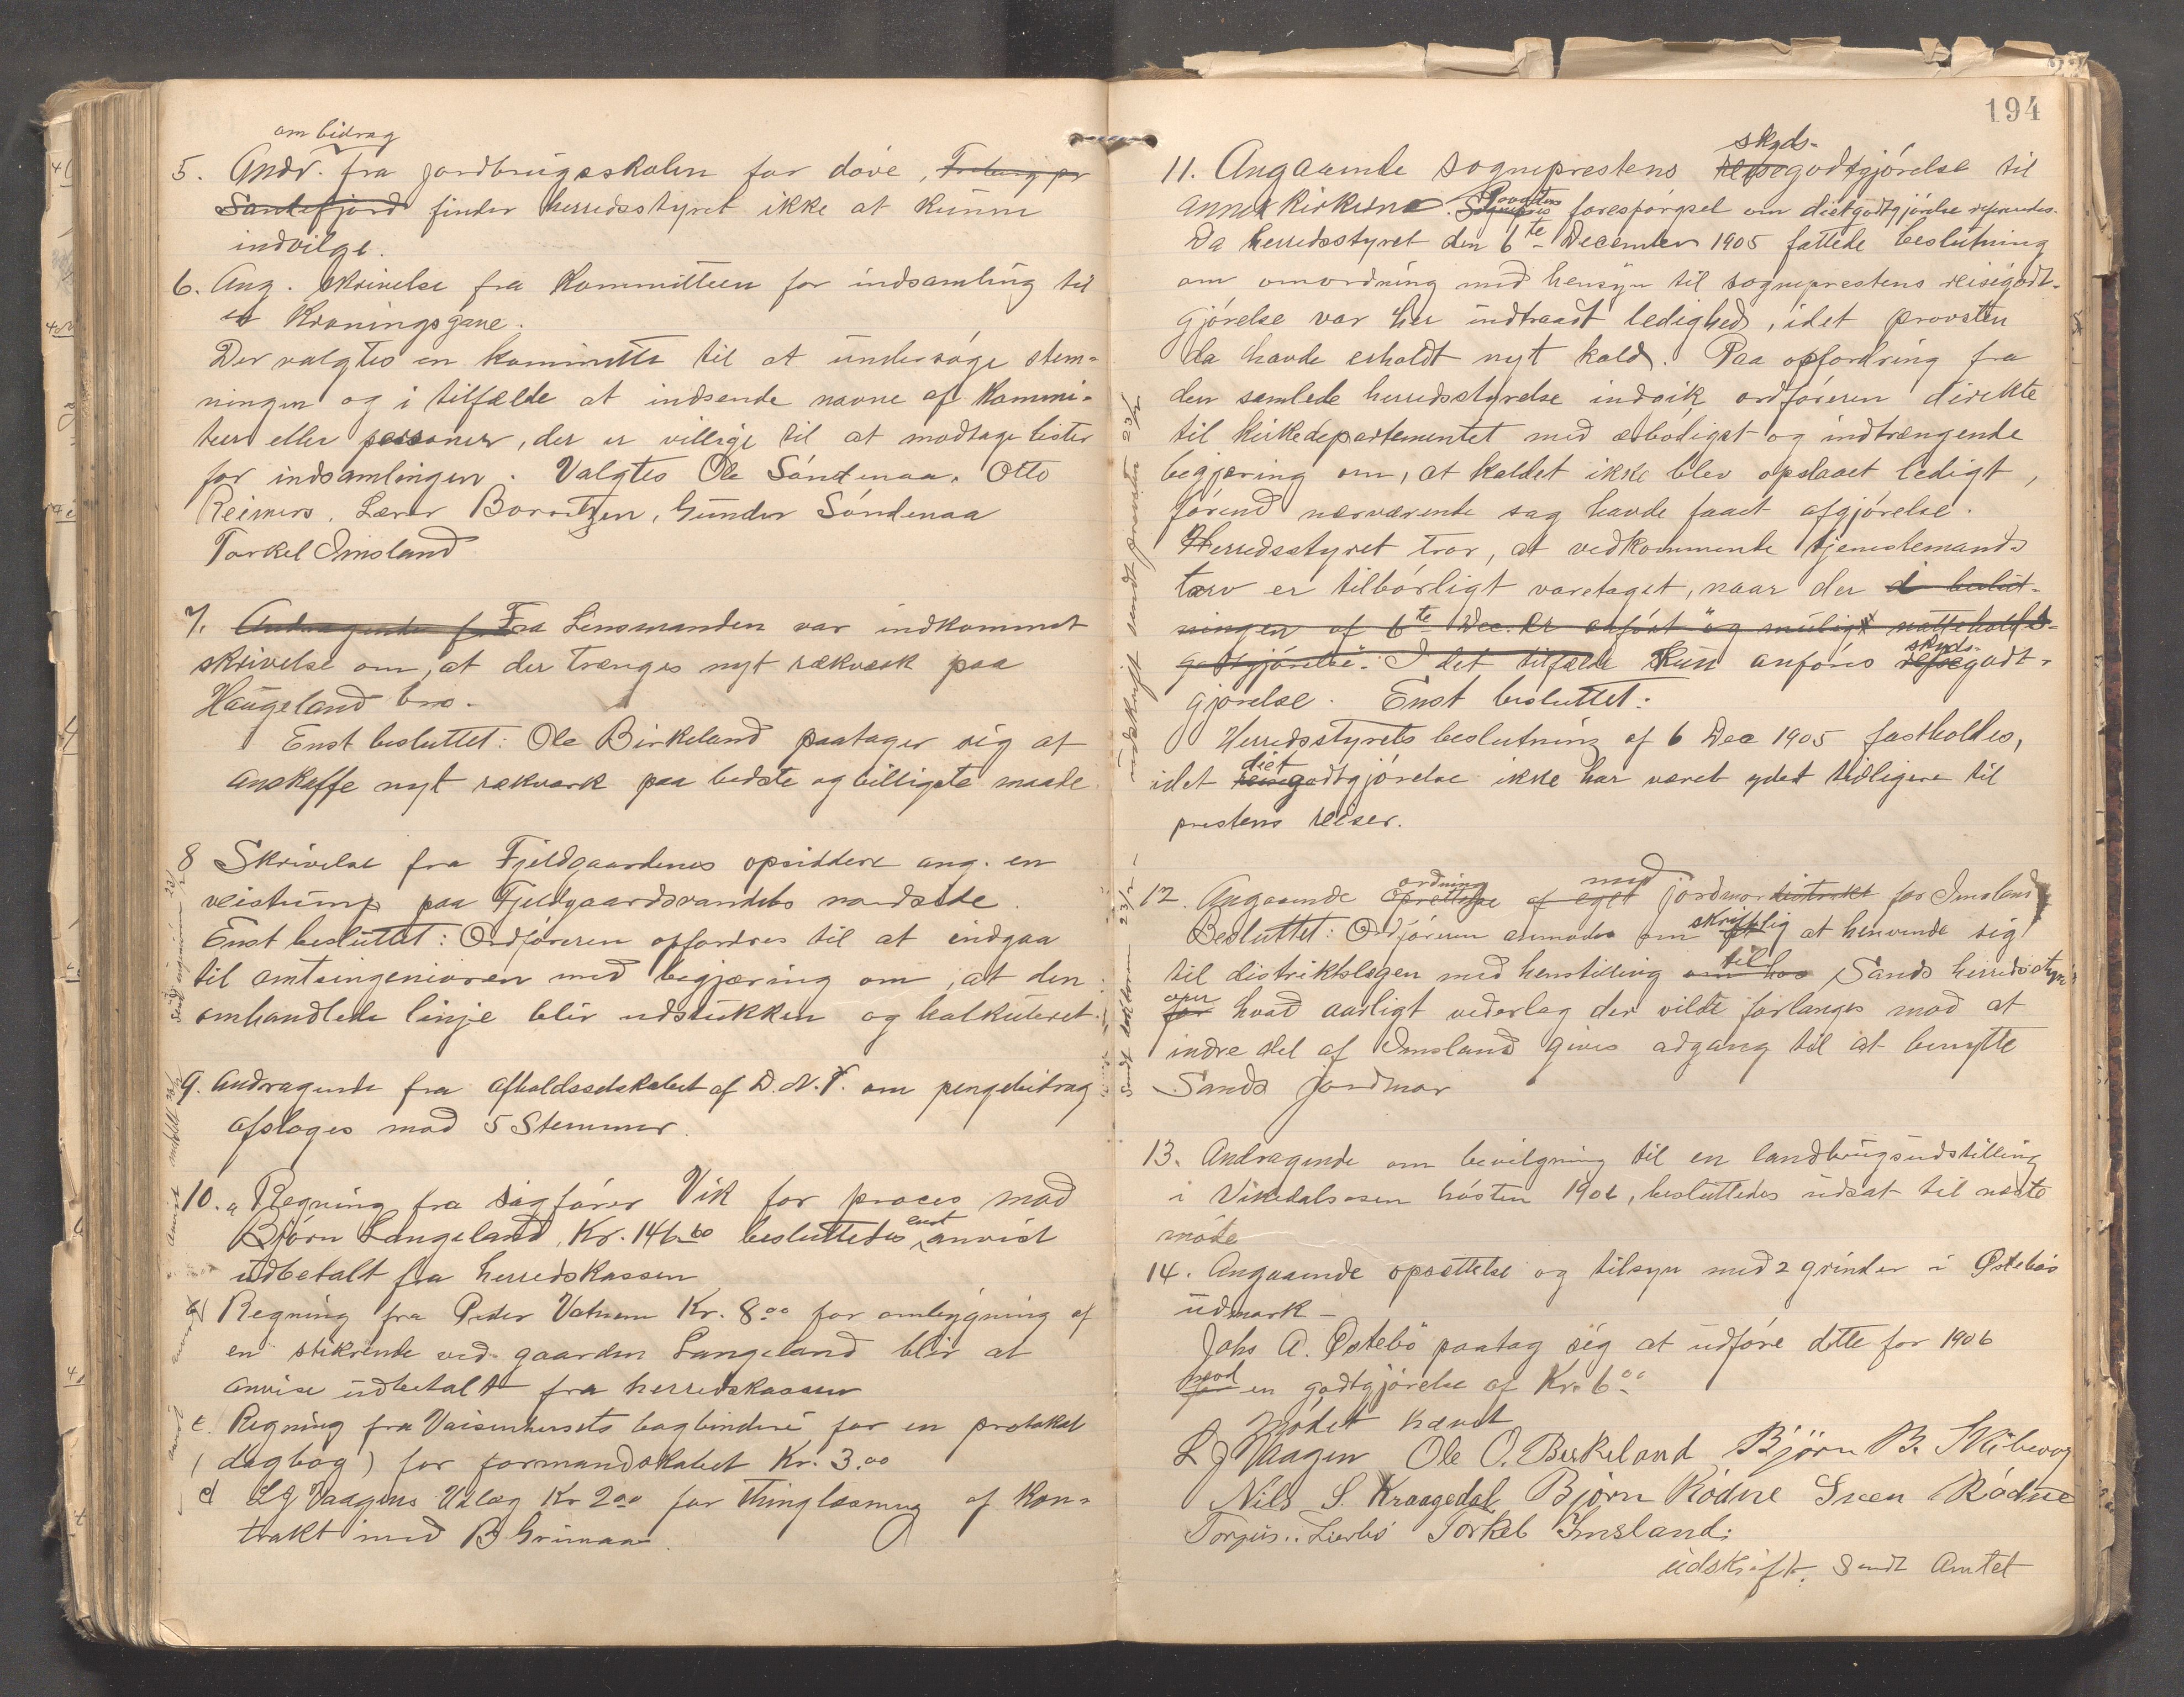 om bidrag
5. Andr. fra jordbrugsskolen for døve, Froberg pr
Sandefjord finder herredsstyret ikke at kunne
indvilge.
6. Ang. skrivelse fra Kommitteen for indsamling til
en Kroningsgave.
Der valgtes en kommitte til at undersøge stem-
ningen og i tilfælde at indsende navne af Kommi-
teer eller personer, der er villige til at modtage lister
for indsamlingen. Valgtes Ole Søndenaa, Otto
Reimers, Lærer Gunder Søndenaa
Torkel Imsland
7. Andragende f Fra Lensmanden var indkommet
skrivelse om, at der trænges nyt rækværk paa
Haugeland bro.
Enst besluttet: Ole Birkeland paatager sig at
anskaffe nyt rækværk paa bedste og billigste maade.
8 Skrivelse fra Fjeldgaardenes opsiddere ang. en
veistump paa Fjeldgaardsvandets nordside.
Enst besluttet: Ordføreren opfordres til at indgaa
til amtsingeniøren med begjæring om, at den
omhandlede linje blir udstukken og kalkuleret.
9. Andragende fra Afholdsselskabet af D.N.T. om pengebidrag
afsloges mod 5 Stemmer.
10. a Regning fra sagfører Vik for proces mod
Bjørn Langeland, Kr. 146.60 besluttedes enst anvist
udbetalt fra herredskassen
b) Regning fra Peder Vatnem Kr. 8.00 for ombygning af
en stikrende ved gaarden Langeland blir at
anvise udbetalt fra herredskassen
c. Regning fra Vaisenhusets bogbinderi for en protokol
(dagbog) for formandskabet Kr. 3.00
d LJ Vaagens Udlæg Kr 2.00 for Thinglæsning af Kon-
trakt med B Grimaas.
194
skyds-
11. Angaaende sogneprestens reisegodtgjørelse til
annexkirkerne. Sognepres Provstens forespørgsel om diætgodtgjørelse
Da herredsstyret den 6te December 1905 fattede beslutning
om omordning med hensyn til sogneprestens reisegodt-
gjørelse var her indtraadt ledighed, idet provsten
da havde erholdt nyt kald. Paa opfordring fra
den samlede herredsstyrelse indgik ordføreren direkte
til kirkedepartementet med ærbødigst og indtrængende
begjæring om, at kaldet ikke blev opslaaet ledigt,
førend nærværende sag havde faaet afgjørelse.
Herredsstyret tror, at vedkommende tjenestemands
tarv er tilbørligt varetaget, naar der i beslut-
ningen af 6te Dec. er anført "og mulig nattehold
godtgjørelse". I det tilfælde Kun anføres skyds- reisegodt-
gjørelse. Enst besluttet:
Herredsstyrets beslutning af 6 Dec 1905 fastholdes,
idet diæt godtgjørelse ikke har været ydet tidligere til
prestens reiser.
12. Angaaende oprettelse ordning af eget med jordmordistrikt for Imsland
Besluttet: Ordføreren anmodes om skriftlig at henvende sig
til distriktslægen med henstilling om hos til Sands herredsstyre
for over hvad aarligt vederlag der vilde forlanges mod at
indre del af Imsland gives adgang til at benytte
Sands jordmor
13. Andragende om bevilgning til en landbrugsudstilling
i Vikedalsosen høsten 1906, besluttedes udsat til næste
møde
14. Angaaende opsættelse og tilsyn med 2 grinder i Østebøs
udmark -
Johs A. Østebø paatog sig at udføre dette for 1906
for mod en godtgjørelse af Kr. 6.00
Mødet hævet
L J Vaagen Ole O. Birkeland Bjørn B.
Nils S. Kraagedal Bjørn Rødne Sven Rødne
Torkel Imsland.
udskrift. Sendt Amtet